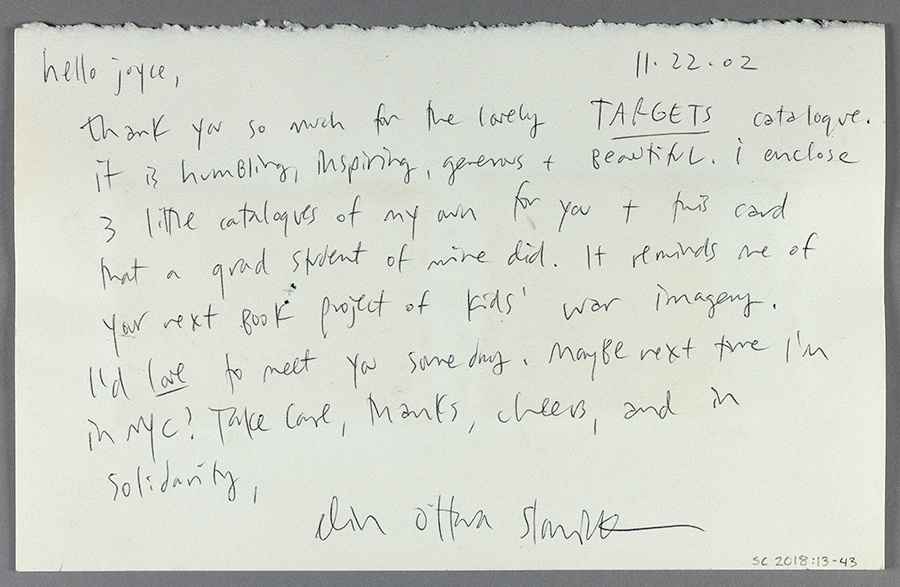 hello joyce,
11.22.02
thank you so much for the lovely TARGETS catalogue.
it is humbling, inspiring, generous + beautiful. i enclose
3 little catalogues of my own for you + this card
that a grad student of mine did. It reminds me of
your next book project of kids' war imagery.
I'd love to meet you some day. Maybe next time I'm
in NYC? Take care, thanks, cheers, and in
solidarity,
elin o'Hara slavick
SC 2018:13-43